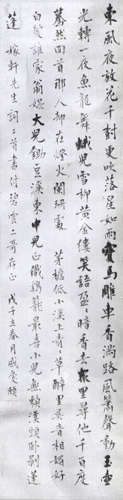 東風夜放花千樹更吹落星如雨寶馬雕車香滿路鳳簫聲動玉壺
光轉一夜魚龍舞蛾兒雪柳黃金縷笑語盈盈暗香去衆裏尋他千百度
驀然回首那人卻在燈火闌珊處 茅檐低小溪上青青草醉裏吳音相媚好
白髮誰家翁媼大兒鋤豆溪東中兒正織雞籠最喜小兒無賴溪頭卧剝蓮
蓬
稼軒先生詞二首書 碧雲二弟 正 戊子立春月